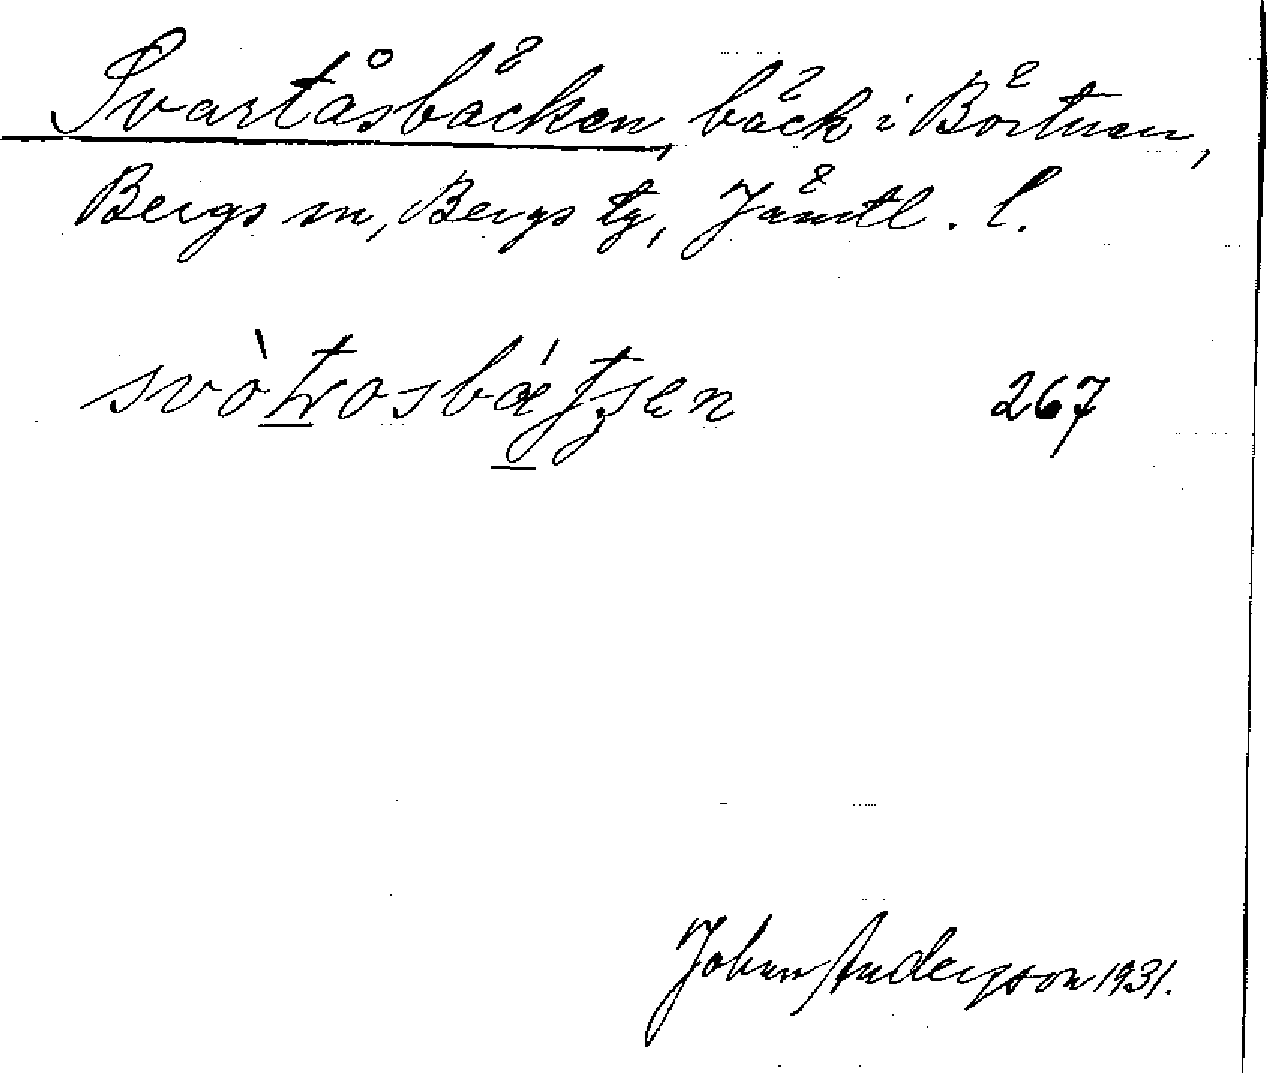 Svartåsbäcken, bäck i Börtnan,
Bergs sn, Bergs tg, Jämtl. l.
267
Johan Anderzson 1931.